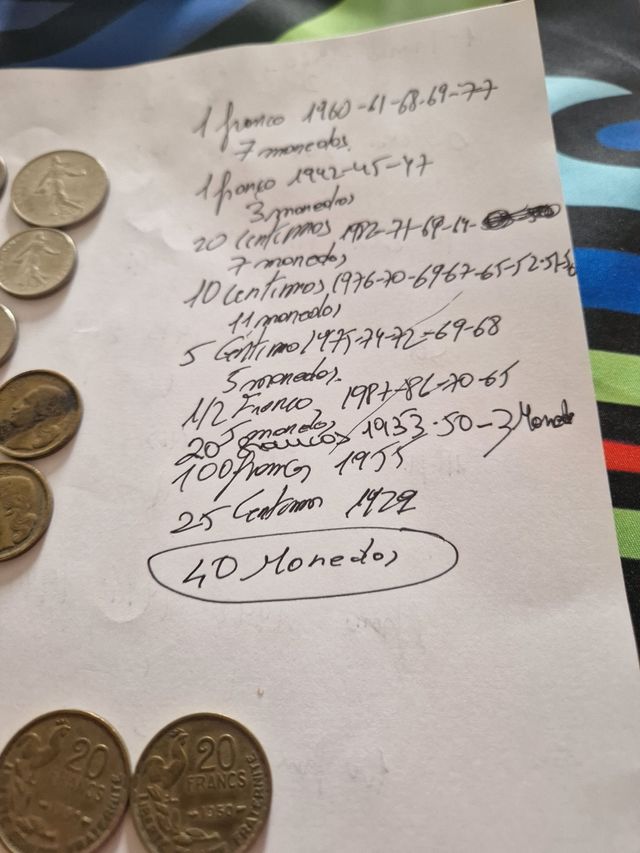 1 franco 1960-61-68-69-77
7 monedas.
1 franco 1942-45-47
3 monedas
20 Centimos
7 monedas
10 Centimos 1976-70-69-67-65-52-51
11 monedas
5 Centimo 1975-74-72-69-68
5 monedas.
1/2 Franco 1987-86-70-65
5 monedas
20 francos 1953-50-3 Moned
100 francs 1955
25 Centimos 1929
40 Monedas
20
FRANCS
20
FRANCS
1950